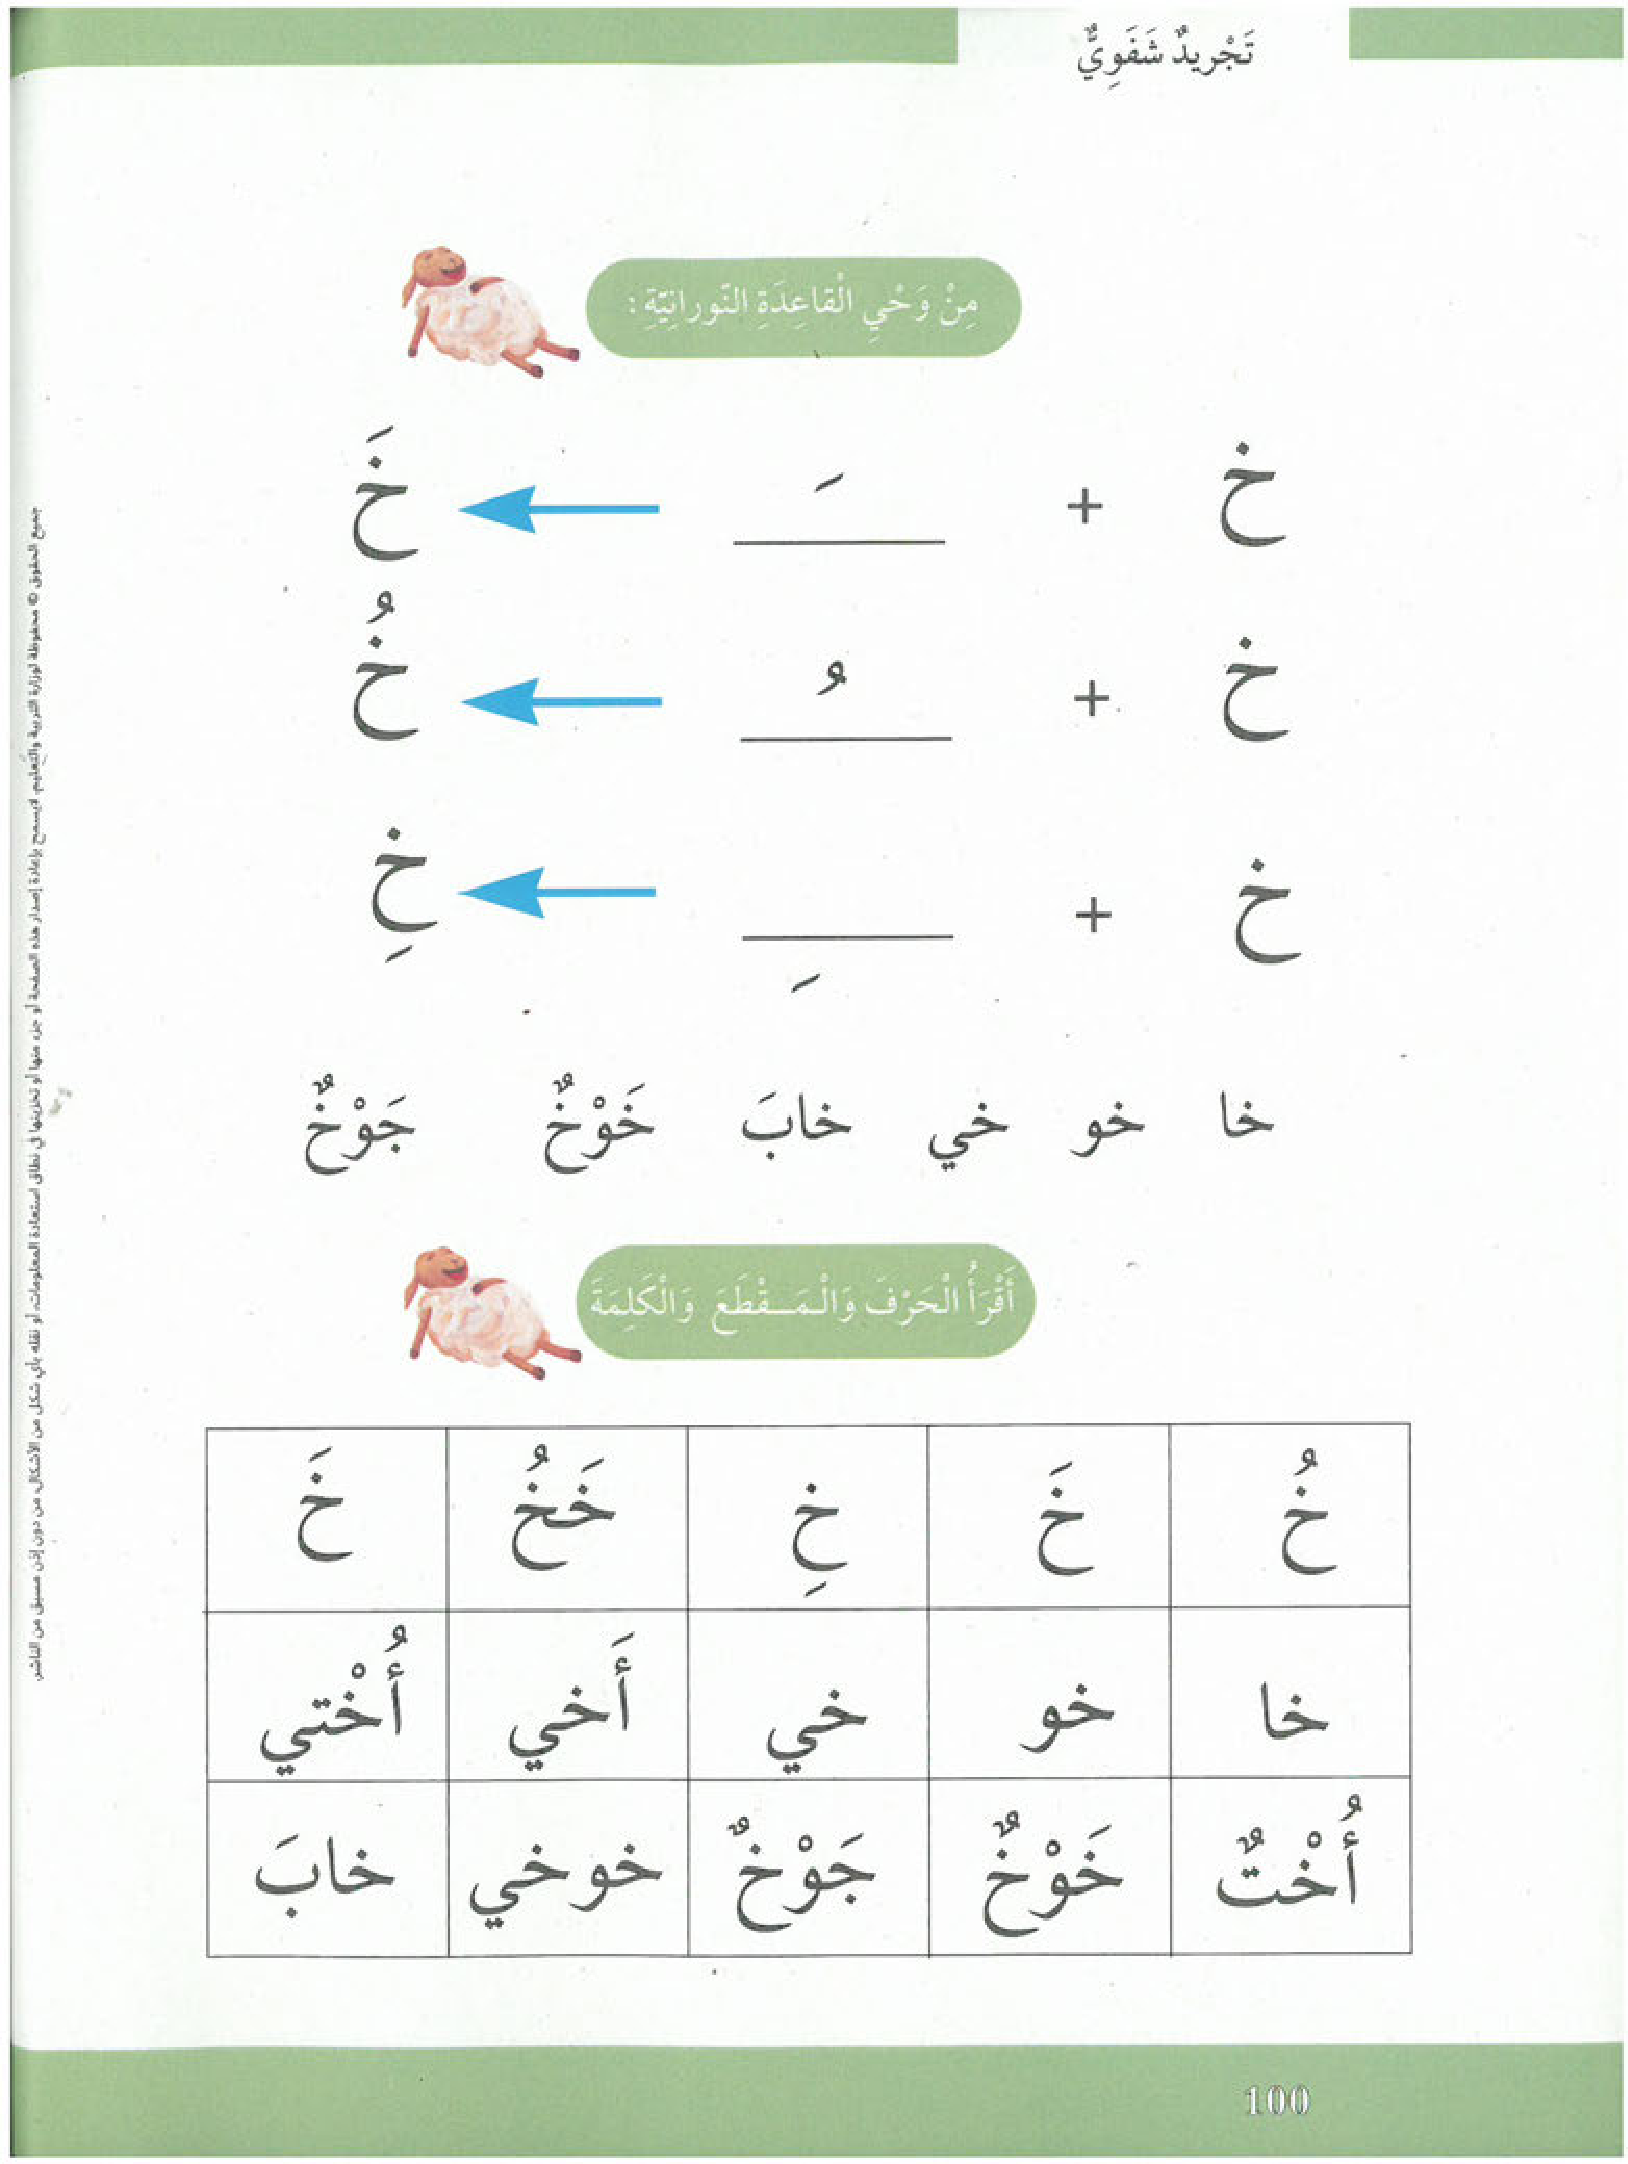 تَجْريدٌ شَفَوِيٌّ
مِنْ وَحْيِ الْقاعِدَةِ النّورانِيَّةِ :
خ + ـَ خَ
خ + ـُ خُ
خ + ـِ خِ
خا خو خي خابَ خَوْخٌ جَوْخٌ
أَقْرَأُ الْحَرْفَ وَالْـمَـــقْطَعَ وَالْكَلِمَةَ
خُ خَ خِ خَخُ خَ
خا خو خي أَخي أُخْتي
أُخْتٌ خَوْخٌ جَوْخٌ خوخي خابَ
جميع الحقوق © محفوظة لوزارة التربية والتّعليم. لايسمح بإعادة إصدار هذه الصفحة أو جزء منها أو تخزينها في نطاق استعادة المعلومات، أو نقله بأي شكل من الأشكال، من دون إذن مسبق من الناشر.
100